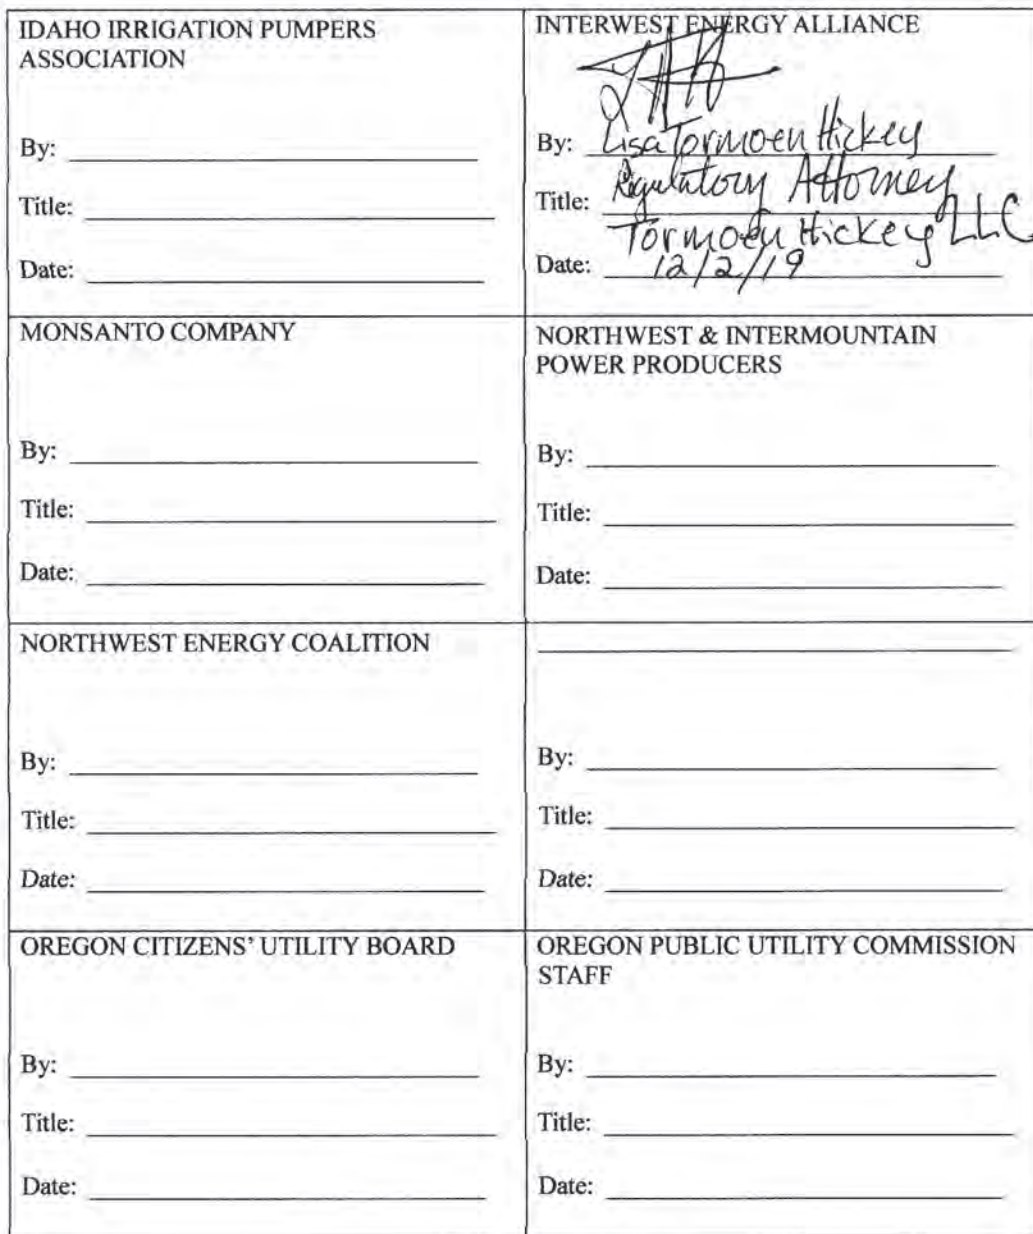 IDAHO IRRIGATION PUMPERS
ASSOCIATION
By:
Title:
Date:
INTERWEST ENERGY ALLIANCE
By: Lisa Tormoen Hickey
Title: Regulatory Attorney
Tormoen Hickey LLC
Date: 12/2/19
MONSANTO COMPANY
By:
Title:
Date:
NORTHWEST & INTERMOUNTAIN
POWER PRODUCERS
By:
Title:
Date:
NORTHWEST ENERGY COALITION
By:
Title:
Date:
By:
Title:
Date:
OREGON CITIZENS’ UTILITY BOARD
By:
Title:
Date:
OREGON PUBLIC UTILITY COMMISSION
STAFF
By:
Title:
Date: